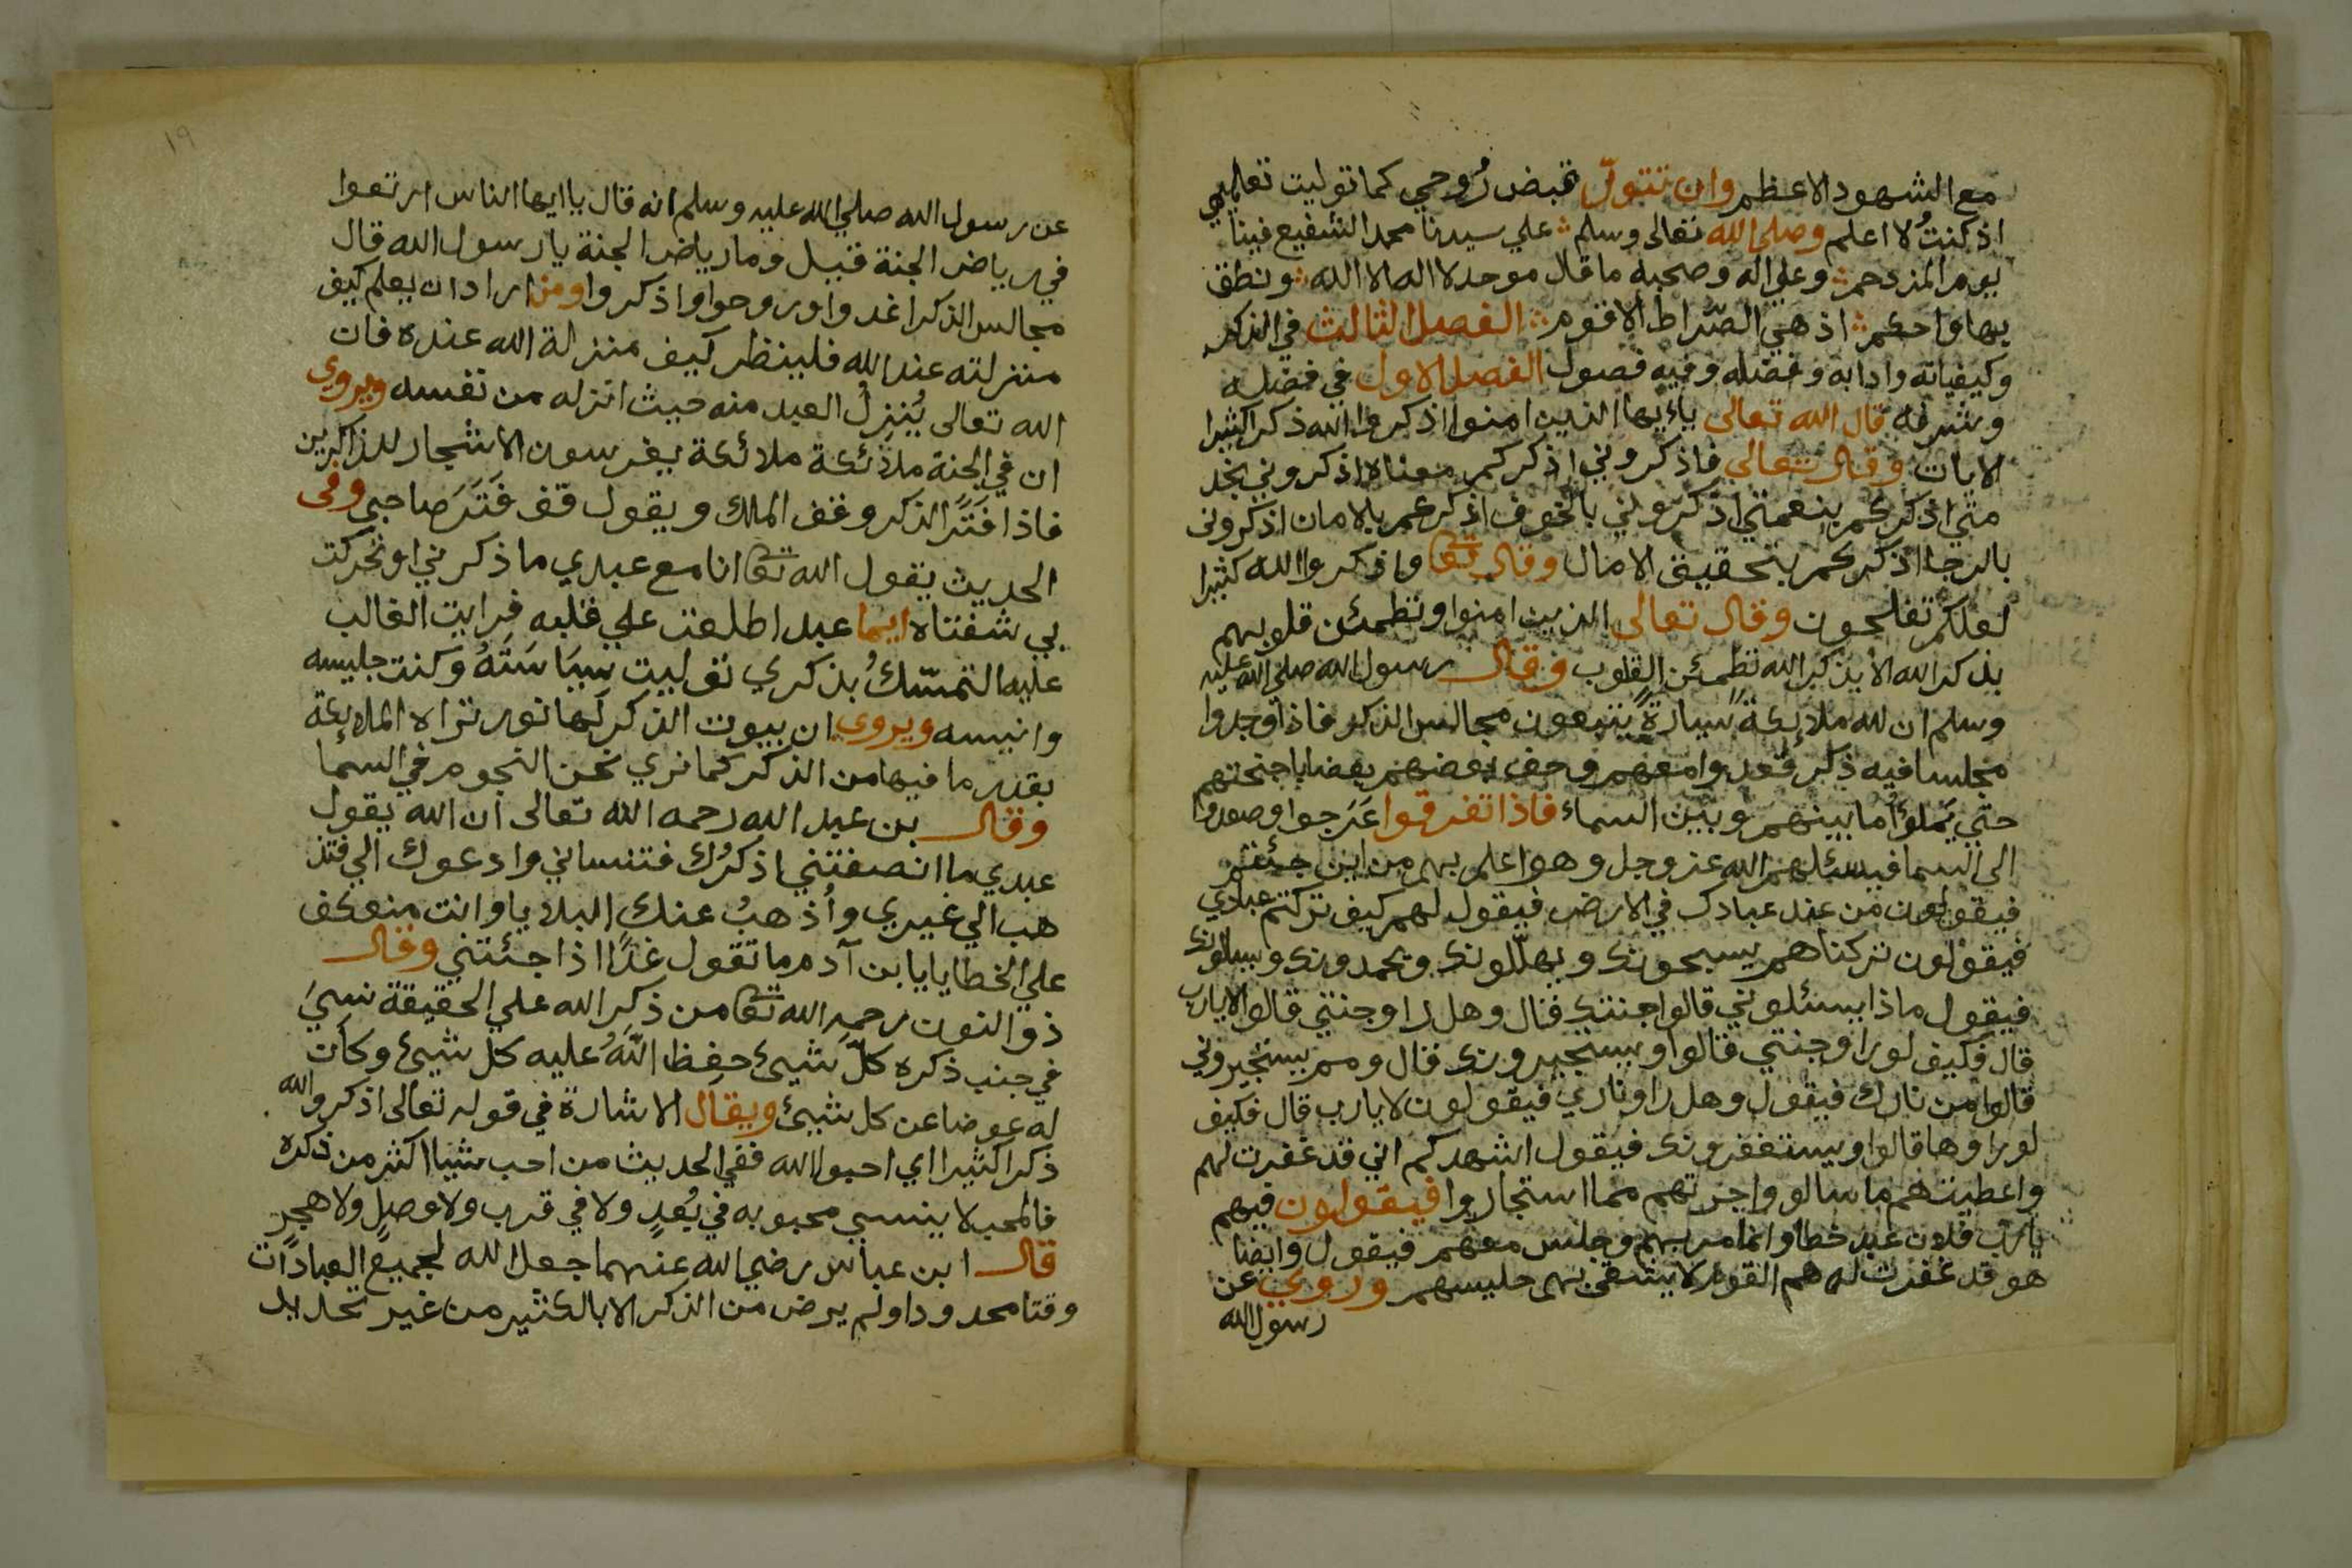 مع الشهود الاعظم وان تتولّ قبض رُوحي كما توليت تعليمي
اذ كنتُ لا اعلم وصلى الله تعالى وسلم علي سيدنا محمد الشفيع فينا
يوم المزدحم وعلي اله وصحبه ما قال موحد لا اله الا الله ونطق
بها واحكم اذ هي الصّراط الاقوم الفصل الثالث في الذكر
وكيفياته وادابه وفضله وفيه فصول الفصل الاول في فضله
وشرفه قال الله تعالى ياءيها الذين امنوا اذكروا الله ذكرا كثيرا
الايات وقال تعالى فاذكروني اذكركم معناه اذكروني بخد
متي اذكركم بنعمتي اذكروني بالخوف اذكركم بالامان اذكروني
بالرجا اذكركم بتحقيق الامال وقال تعا واذكروا الله كثيرا
لعلكم تفلحون وقال تعالى الذين امنوا وتطمئن قلوبهم
بذكر الله الا بذكر الله تطمئن القلوب وقال رسول الله صلي الله عليه
وسلم ان لله ملائكةً سيارةً يتبعون مجالس الذكر فاذا وجدوا
مجلسا فيه ذكر قعدوا معهم وحف بعضهم بعضا باجنحتهم
حتي يملوُا ما بينهم وبين السماء فاذا تفرقوا عَرَجوا وصعدوا
الى السما فيسئلهم الله عزوجل وهو اعلم بهم من اين جئتم
فيقولون من عند عبادك في الارض فيقول لهم كيف تركتم عبادي
فيقولون تركناهم يسبحونك ويهلّلونك ويحمدونك ويسالونك
فيقول ماذا يسئلوني قالوا جنتك قال وهل راوجنتي قالوا لا يارب
قال فكيف لوراوجنتي قالوا ويستجيرونك قال ومم يستجيروني
قالوا من نارك فيقول وهل راوناري فيقولون لا يارب قال فكيف
لوراوها قالوا ويستغفرونك فيقول اشهدكم اني قد غفرت لهم
واعطيتهم ما سالو واجرتهم مما استجاروا فيقولون فيهم
يارب فلان عبد خطاوانما مر بهم وجلس معهم فيقول وايضا
هو قد غفرت له هم القوم لا يشقى بهم جليسهم وروي عن
رسول الله
١٩
عن رسول الله صلي الله عليه وسلم انه قال يا ايها الناس ارتعوا
في رياض الجنة قيل وما رياض الجنة يا رسول الله قال
مجالس الذكر اغدوا وروحوا واذكروا ومن اراد ان يعلم كيف
منزلته عند الله فلينظر كيف منزلة الله عنده فان
الله تعالى يُنزِلُ العبد منه حيث انزله من نفسه ويروى
ان في الجنة ملائكة ملائكة يغرسون الاشجار للذاكرين
فاذا فَتَرَ الذكر وقف الملك ويقول قف فَتَرَ صاحبي وفى
الحديث يقول الله تعا انا مع عبدي ما ذكرني او تحركت
بي شفتاه ايما عبد اطلعت علي قلبه فرايت الغالب
عليه التمسّكُ بذكري توليت سيَاسَتَهُ وكنت جليسه
وانيسه ويروى ان بيوت الذكر لها نور تراه الملائكة
بقدر ما فيها من الذكر كما نري نحن النجوم في السما
وقال بن عبد الله رحمه الله تعالى ان الله يقول
عبدي ما انصفتني اذكرُك فتنساني وادعوك الي فتذ
هب الي غيري وأُذهبُ عنك البلايا وانت منعكف
علي الخطايا يا بن آدم ما تقول غدًا اذا جئتني وقال
ذو النون رحمه الله تعا من ذكر الله علي الحقيقة نسيَ
في جنب ذكره كلّ شيئ حفِظ اللهُ عليه كل شيئ وكان
له عوضا عن كل شيئ ويقال الاشارة في قوله تعالى اذكروالله
ذكرا كثيرا اي احبوا الله ففي الحديث من احب شيئا اكثر من ذكره
فالمحب لا ينسي محبوبه في بُعدٍ ولا في قرب ولا وصلٍ ولا هجرٍ
قال ابن عباس رضي الله عنهما جعل الله لجميع العبادات
وقتا محدودا ولم يرض من الذكر الا بالكثير من غير تحديد